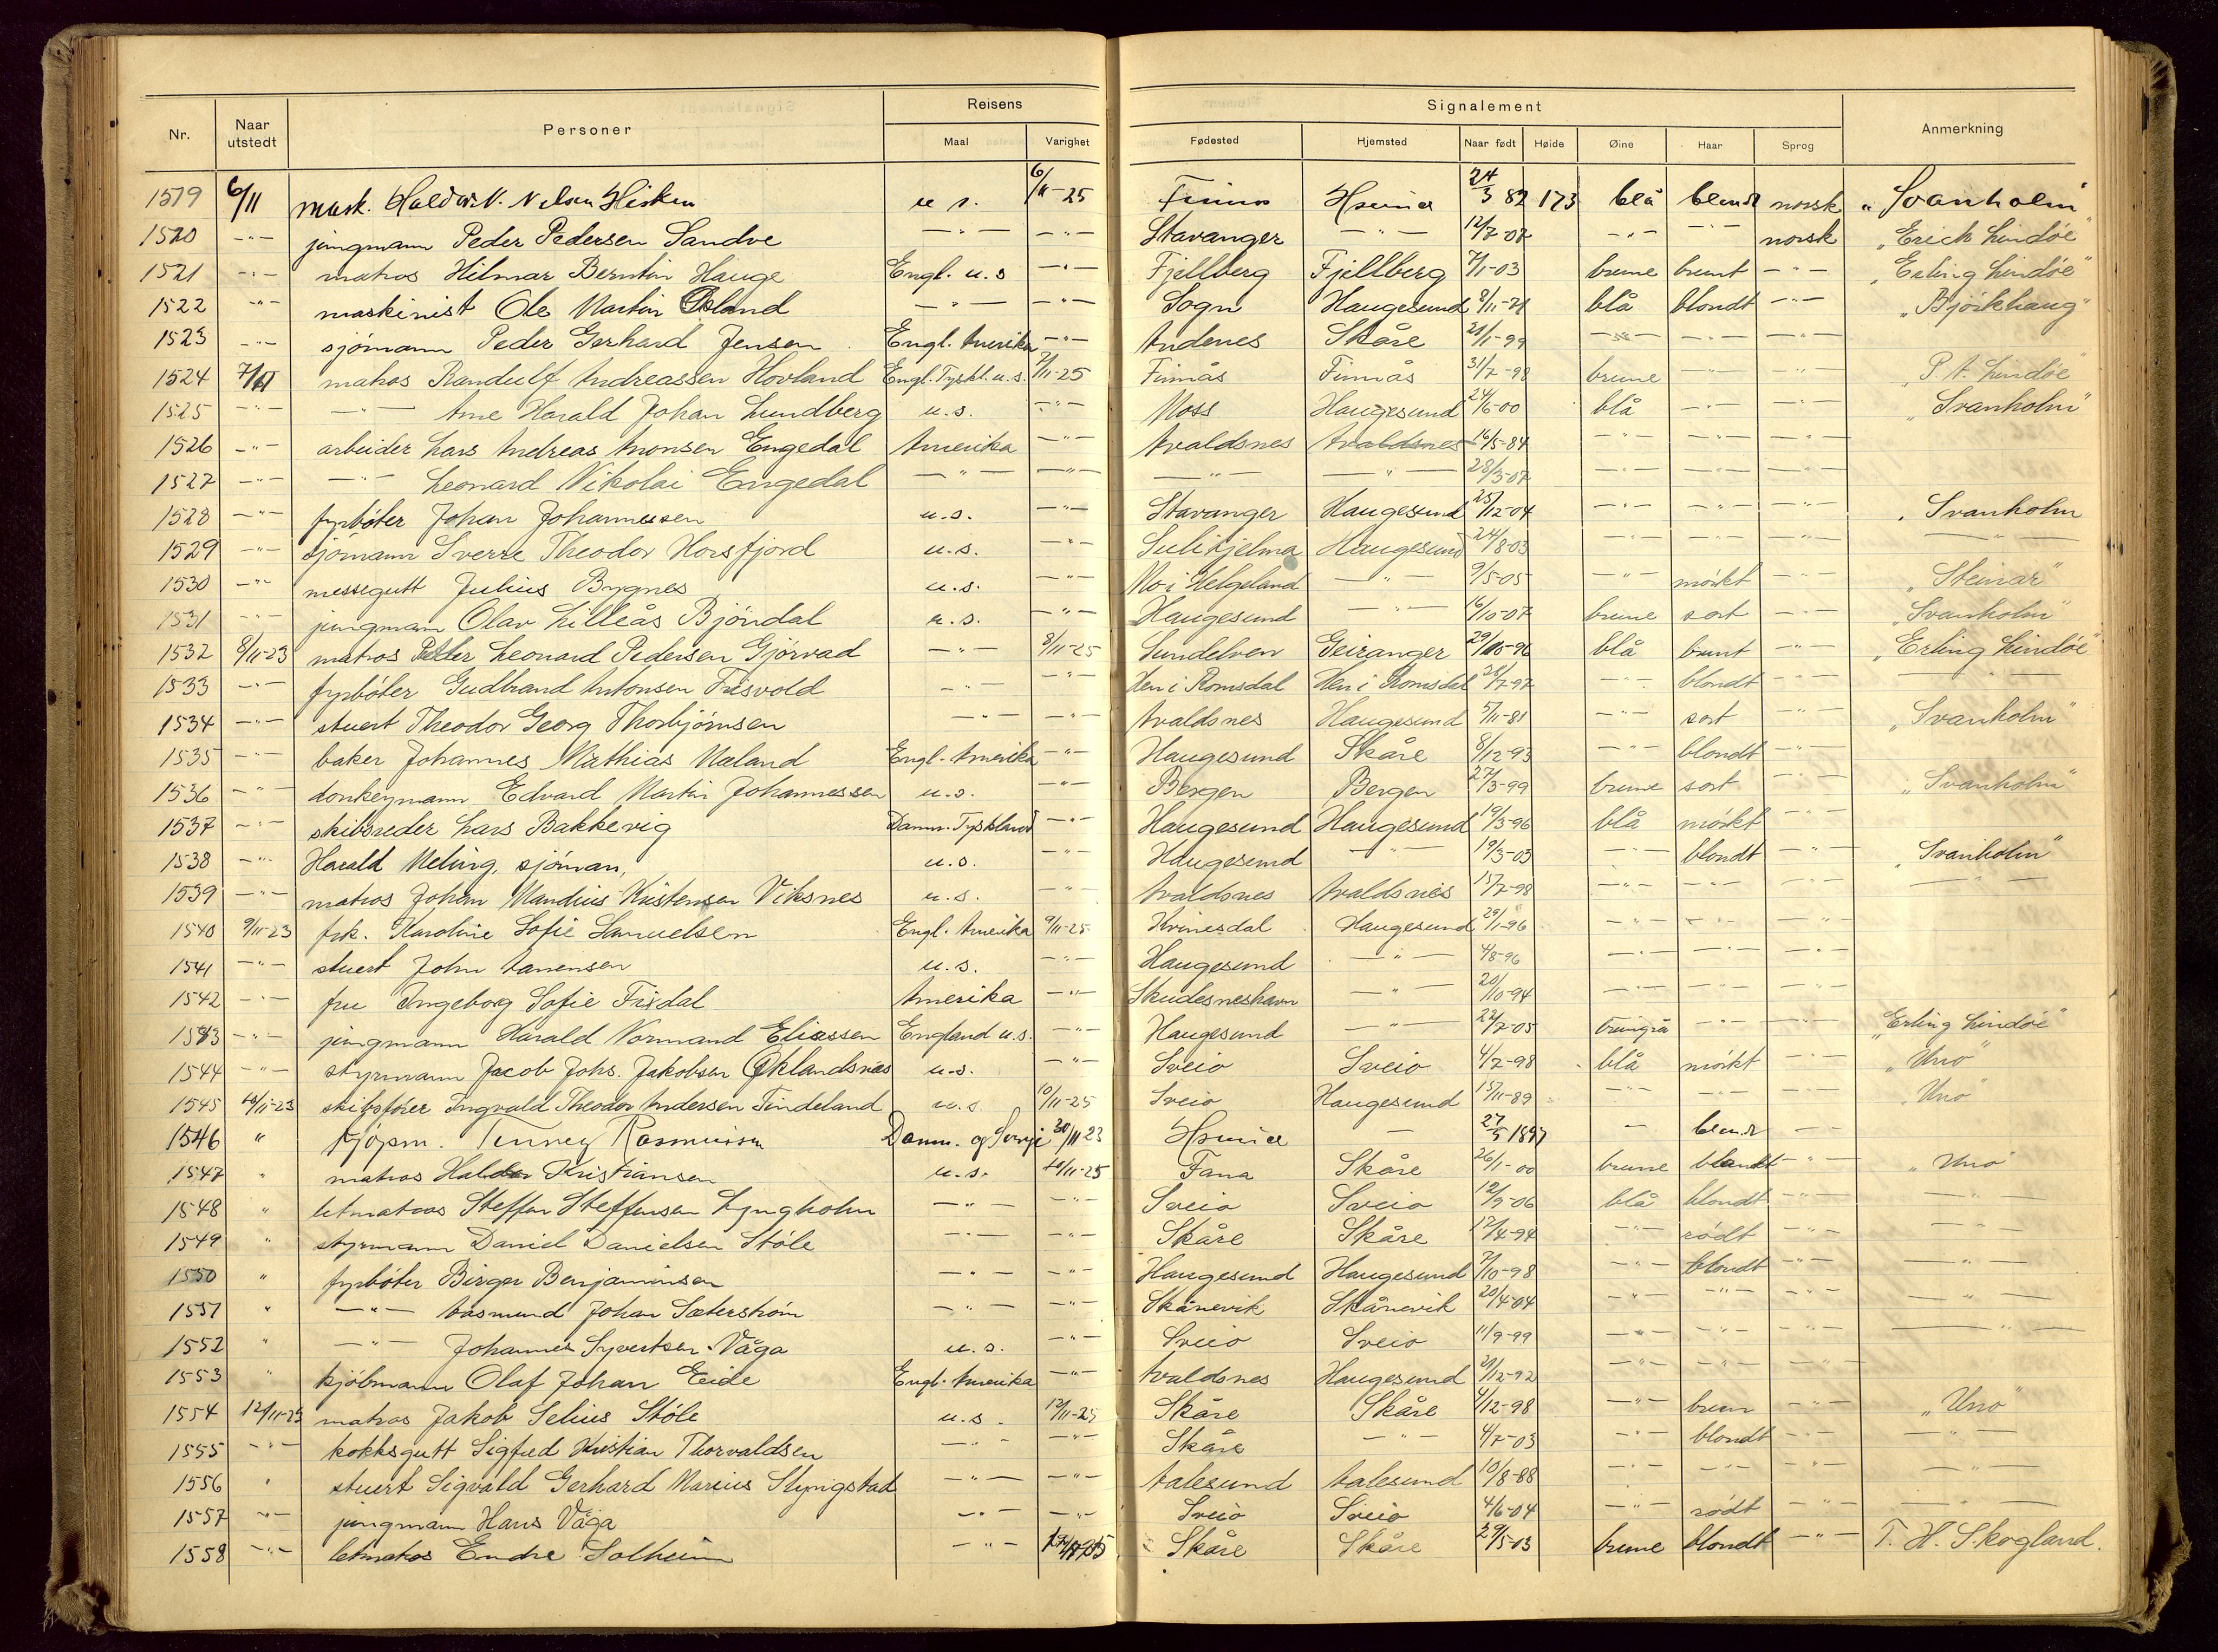 Reisens Signalement
Nr. Naar utstedt Personer Maal Varighet Fødested Hjemsted Naar født Høide Øine Haar Sprog Anmerkning
1519 6/11 mask. Haldor N. Nilsen Hisken u s. 6/11-25 24/3 82 173 blå blond norsk "Svanholm"
1520 -"- jungmann Peder Pedersen Sandve -"- -"- Stavanger -"- 12/7-07 -"- -"- norsk "Erich Lindøe"
1521 -"- matros Hilmar Berntin Hauge Engl. u.s -"- Fjellberg Fjellberg 7/1-03 brune brunt -"- "Erling Lindøe"
1522 -"- maskinist Ole Martin -"- -"- Sogn Haugesund 8/11-71 blå blondt -"- "Björkhaug"
1523 -"- sjömann Peder Gerhard Jensen Engl. Amerika -"- Andenes Skåre 21/1-99 -"- -"- -"-
1524 7/11 matros Randulf Andreassen Hovland Engl. Tyskl. u.s. 7/11-25 Finnås Finnås 31/7-98 brune -"- -"- "P. A. Lindøe"
1525 -"- -"- Arne Harald Johan Lundberg u.s. -"- Moss Haugesund 24/6-00 blå -"- -"- "Svanholm"
1526 -"- arbeider Lars Andreas Amonsen Engedal Amerika -"- Avaldsnes Avaldsnes 16/5-84 -"- -"- -"-
1527 -"- -"- Leonard Nikolai Engedal -"- -"- -"- -"- 28/3-07 -"- -"- -"-
1528 -"- fyrböter Johan Johannessen u.s. -"- Stavanger Haugesund 25/12-04 -"- -"- -"- "Svanholm
1529 -"- sjömann Sverre Theodor Horsfjord u.s. -"- Sulitjelma Haugesund 24/8-03 -"- -"- -"- -"-
1530 -"- messegutt Julius Bygnes u.s. -"- Mo i Helgeland -"- 9/5-05 -"- mörkt -"- "Steinar"
1531 -"- jungmann Olav Lilleås Bjöndal u.s. -"- Haugesund -"- 16/10-07 brune sort -"- "Svanholm"
1532 8/11-23 matros Petter Leonard Pedersen Gjörvad -"- 8/11-25 Sundelven Geiranger 29/10-96 blå brunt -"- "Erling Lindøe"
1533 -"- fyrböter Gudbrand Antonsen Frisvold -"- -"- Hen i Romsdal Hen i Romsdal 28/7-97 -"- blondt -"- -"-
1534 -"- stuert Theodor Georg Thorbjörnsen -"- -"- Avaldsnes Haugesund 5/11-81 -"- sort -"- "Svanholm"
1535 -"- baker Johannes Mathias Mæland Engl. Amerika -"- Haugesund Skåre 8/12-93 -"- blondt -"-
1536 -"- donkeymann Edvard Martin Johannessen u.s. -"- Bergen Bergen 27/3-99 brune sort -"- "Svanholm"
1537 -"- skibsreder Lars Bakkevig Danm. Tyskland -"- Haugesund Haugesund 19/3-96 blå mörkt -"-
1538 -"- Harald Meling, sjöman, u.s. -"- Haugesund -"- 19/3-03 -"- blondt -"- "Svanholm"
1539 -"- matros Johan Mandius Kristensen Viksnes u.s. -"- Avaldsnes Avaldsnes 15/7-98 -"- -"- -"- -"-
1540 9/11-23 frk. Karoline Sofie Samuelsen Engl. Amerika 9/11-25 Kvinesdal Haugesund 29/1-96 -"- -"- -"-
1541 -"- stuert John Aanensen u.s. -"- Haugesund -"- 4/8-96 -"- -"- -"-
1542 -"- fru Ingeborg Sofie Frisdal Amerika -"- Skudesneshavn -"- 20/10-94 -"- -"- -"-
1543 -"- jungmann Harald Normand Eliassen England u.s. -"- Haugesund -"- 22/7-05 brungrå -"- -"- "Erling Lindøe"
1544 -"- styrmann Jacob Johs. Jakobsen Øklandsnes u.s. -"- Sveio Sveio 4/7-98 blå mörkt -"- "Uno"
1545 10/11-23 skibsförer Ingvald Theodor Andersen Tindeland u.s. 10/11-25 Sveio Haugesund 15/11-89 -"- -"- "Uno"
1546 " kjöpm. Rasmussen Danm. og Sverge 30/11 23 - 27/5 1897 - blond
1547 " matros Haldor Kristiansen u.s. 10/11-25 Fana Skåre 26/1-00 brune blondt -"- "Uno"
1548 " letmatros Steffen Steffensen Lyngholm -"- -"- Sveio Sveio 12/9-06 blå blondt -"- -"-
1549 " styrmann Daniel Danielsen Stöle -"- -"- Skåre Skåre 12/4-94 -"- rödt -"- -"-
1550 " fyrböter Birger Benjaminsen -"- -"- Haugesund Haugesund 7/10-98 -"- blondt -"- -"-
1551 " -"- Aasmund Johan Sæterström -"- -"- Skånevik Skånevik 20/4-04 -"- -"- -"- -"-
1552 " -"- Johannes Syvertsen Våga u.s. -"- Sveio Sveio 11/9-99 -"- -"- -"- -"-
1553 " kjöbmann Olaf Johan Eide Engl. Amerika -"- Avaldsnes Haugesund 21/12-92 -"- -"- -"-
1554 12/11-23 matros Jakob Selius Stöle u.s. 12/11-25 Skåre Skåre 4/12-98 -"- brun -"- "Uno"
1555 -"- kokksgutt Sigfred Kristian Thorvaldsen -"- -"- Skåre -"- 4/7-03 -"- blondt -"- -"-
1556 " stuert Sigvald Gerhard Marius Slyngstad -"- -"- Aalesund Aalesund 10/8-88 -"- -"- -"- -"-
1557 -"- jungmann Hans Våga -"- -"- Sveio Sveio 4/6-04 -"- rödt -"- -"-
1558 -"- letmatros Endre Solheim -"- Skåre Skåre 29/5-03 brune blondt -"- T. H. Skogland.